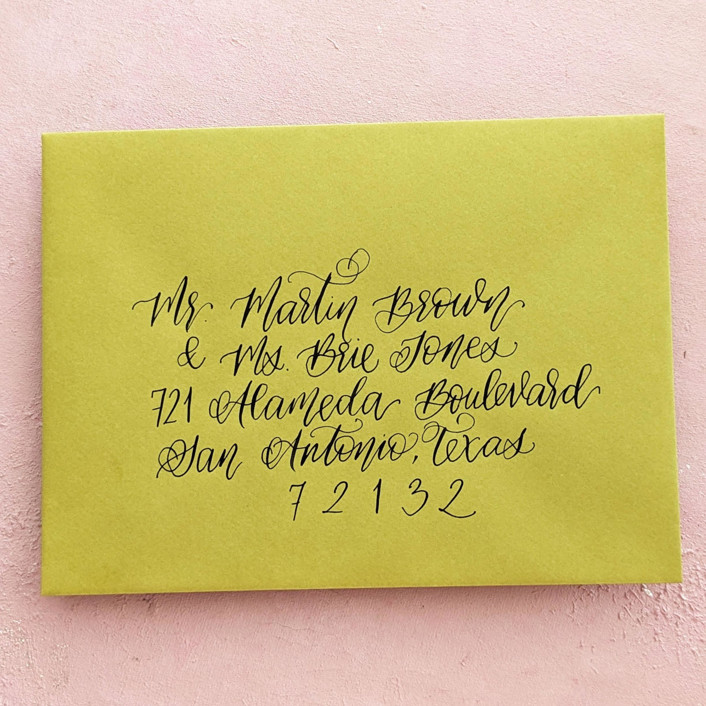 Mr. Martin Brown
& Ms. Brie Jones
721 Alameda Boulevard
San Antonio, Texas
72132